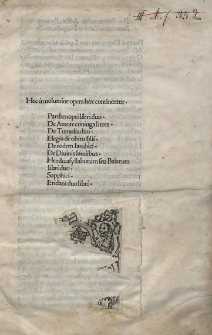 III. A. f 392
Hoc in uolumine opera hæc continentur.
Parthenopei libri duo.
De Amore coniugali tres
De Tumulis duo.
Elegia de obitu filii.
De eodem Iambici.
De Diuinis laudibus.
Hendecasyllaborum seu Baiarum
libri duo.
Sapphici.
Eridani duo libri.